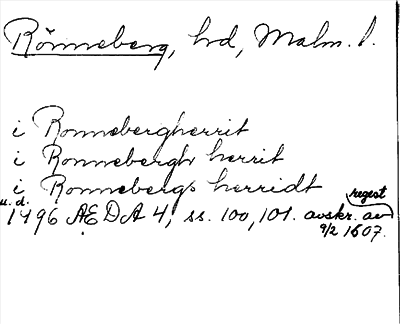 Rönneberg, hd, Malm. l.
i Ronnebergherrit
i Ronnebergh herrit
i Ronnebergs herridt
u. d. regest
1496 ÆDA 4, ss. 100, 101. avskr. av
9/2 1607.